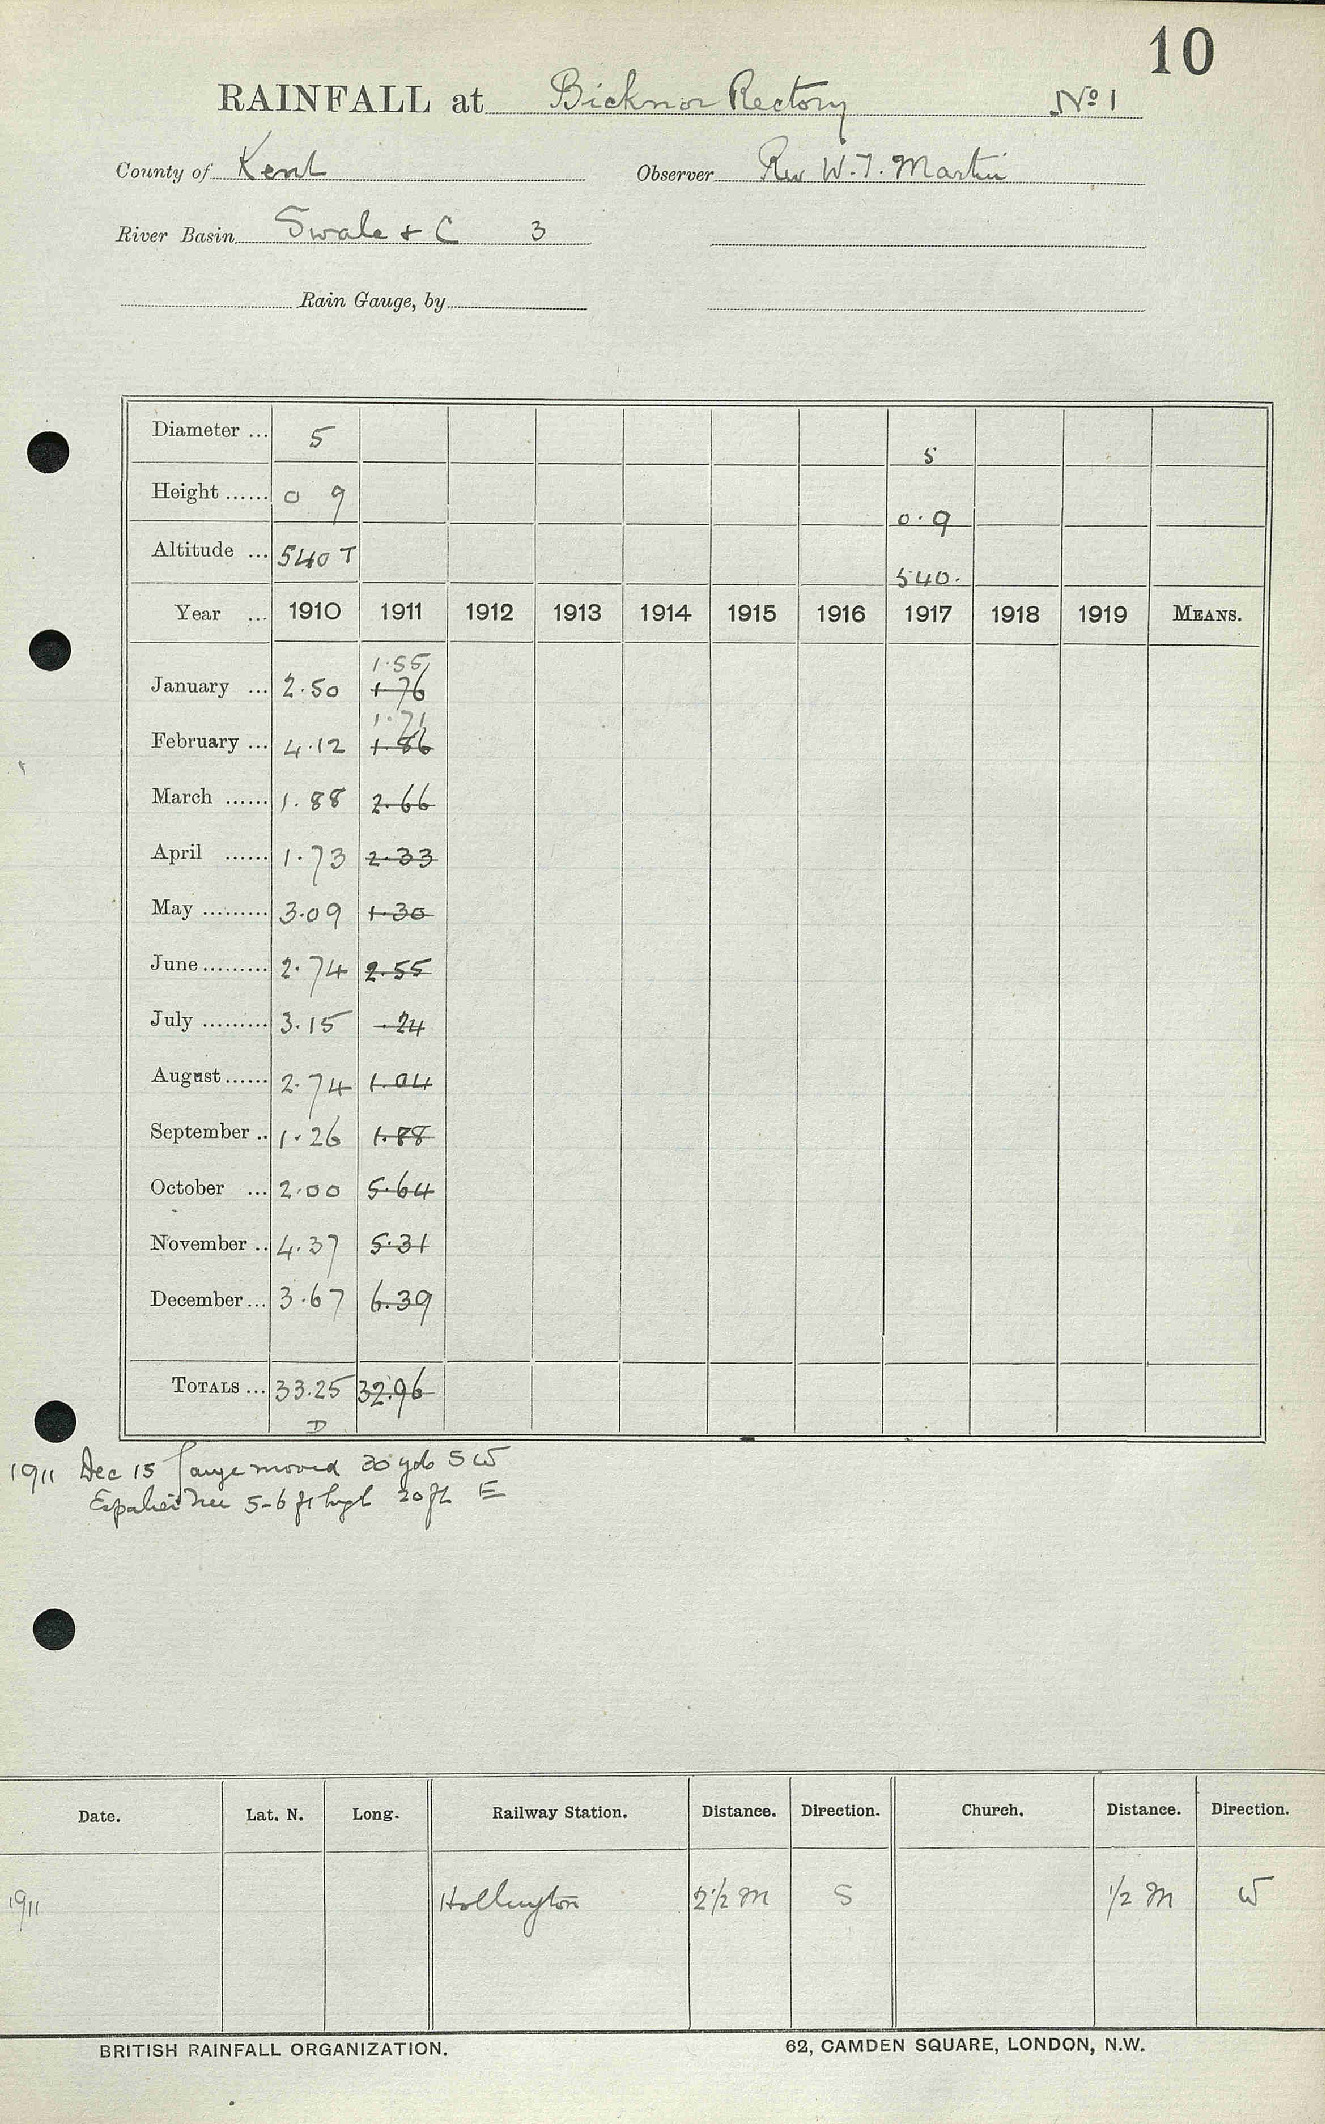 10
RAINFALL at Bicknor Rectory No 1
County of Kent Observer Rev W. T. Martin
River Basin Swale & C 3
Rain Gauge, by
Diameter ... 5 5
Height ...... 0 9 0.9
Altitude ... 540 T 540.
Year ... 1910 1911 1912 1913 1914 1915 1916 1917 1918 1919 MEANS.
1.55
January ... 2.50 1.76
1.71
February ... 4.12 1.86
March ...... 1.88 2.66
April ...... 1.73 2.33
May ......... 3.09 1.30
June ......... 2.74 2.55
July ......... 3.15 .24
August ...... 2.74 1.04
September .. 1.26 1.88
October ... 2.00 5.64
November .. 4.37 5.31
December ... 3.67 6.39
TOTALS ... 33.25 32.96
D
1911 Dec 15 Gauge moved 30 yds SW
Espalier tree 5-6 ft high 20 ft E
Date. Lat. N. Long. Railway Station. Distance. Direction. Church. Distance. Direction.
1911 Hollington 2½ M S ½ M W
BRITISH RAINFALL ORGANIZATION. 62, CAMDEN SQUARE, LONDON, N.W.